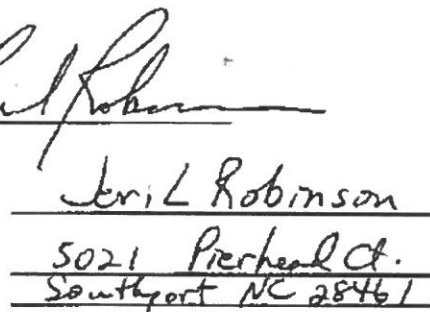 Robinson
Jeri L Robinson
5021 Pierhead Ct.
Southport NC 28461